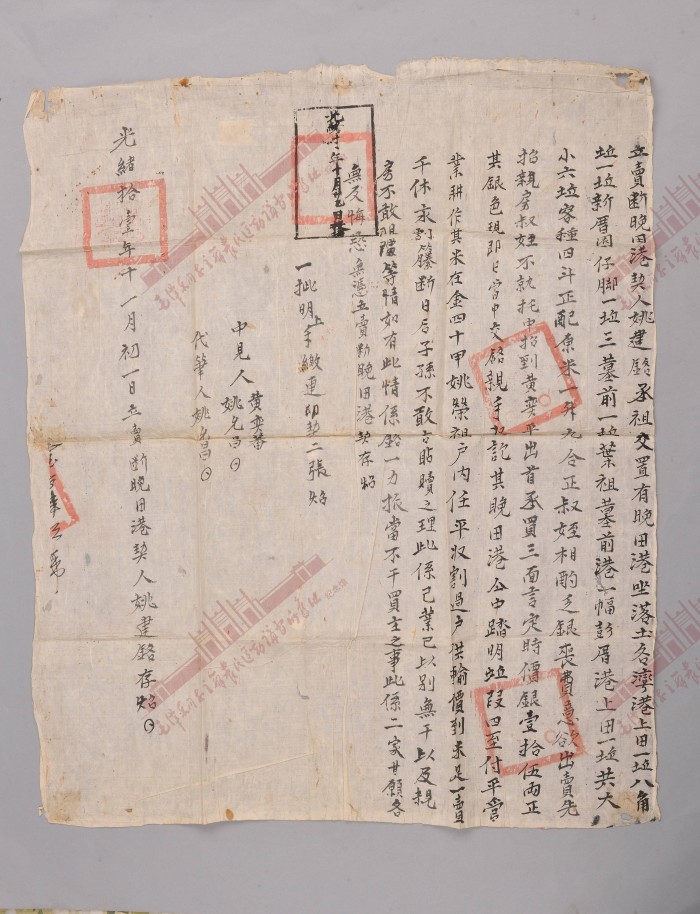 立賣斷晚田港契人姚建銘承祖交置有晚田港坐落土名濟港上田一坵八角
坵一坵新厝園仔脚一坵三墓前一坵葉祖墓前港一幅彭厝港上田一坵共大
小六坵客種四斗正配原米一升九合正叔姪相酌乏銀喪費急欲出賣先
招親房叔姪不就托中招到黃奕平出首承買三面言定時價銀壹拾伍両正
其銀色現即日當中交銘親手收訖其晚田港公中踏明坵段四至付平管
業耕作其米在金四十甲姚榮祖戶内任平收割過戶供輸價到末足一賣
千休永割籐斷日后子孫不敢言貼贖之理此係已業已以别無干以及親
房不敢阻擋等情如有此情係銘一力抵當不干買主之事此係二家甘願各
無反悔恐無憑立賣斷晚田港契存炤
一批明上手繳連印契二張炤
中見人 黃奕蕃
姚允昌
代筆人姚允昌
光緒拾壹年十一月初一日立賣斷晚田港契人姚建銘存炤